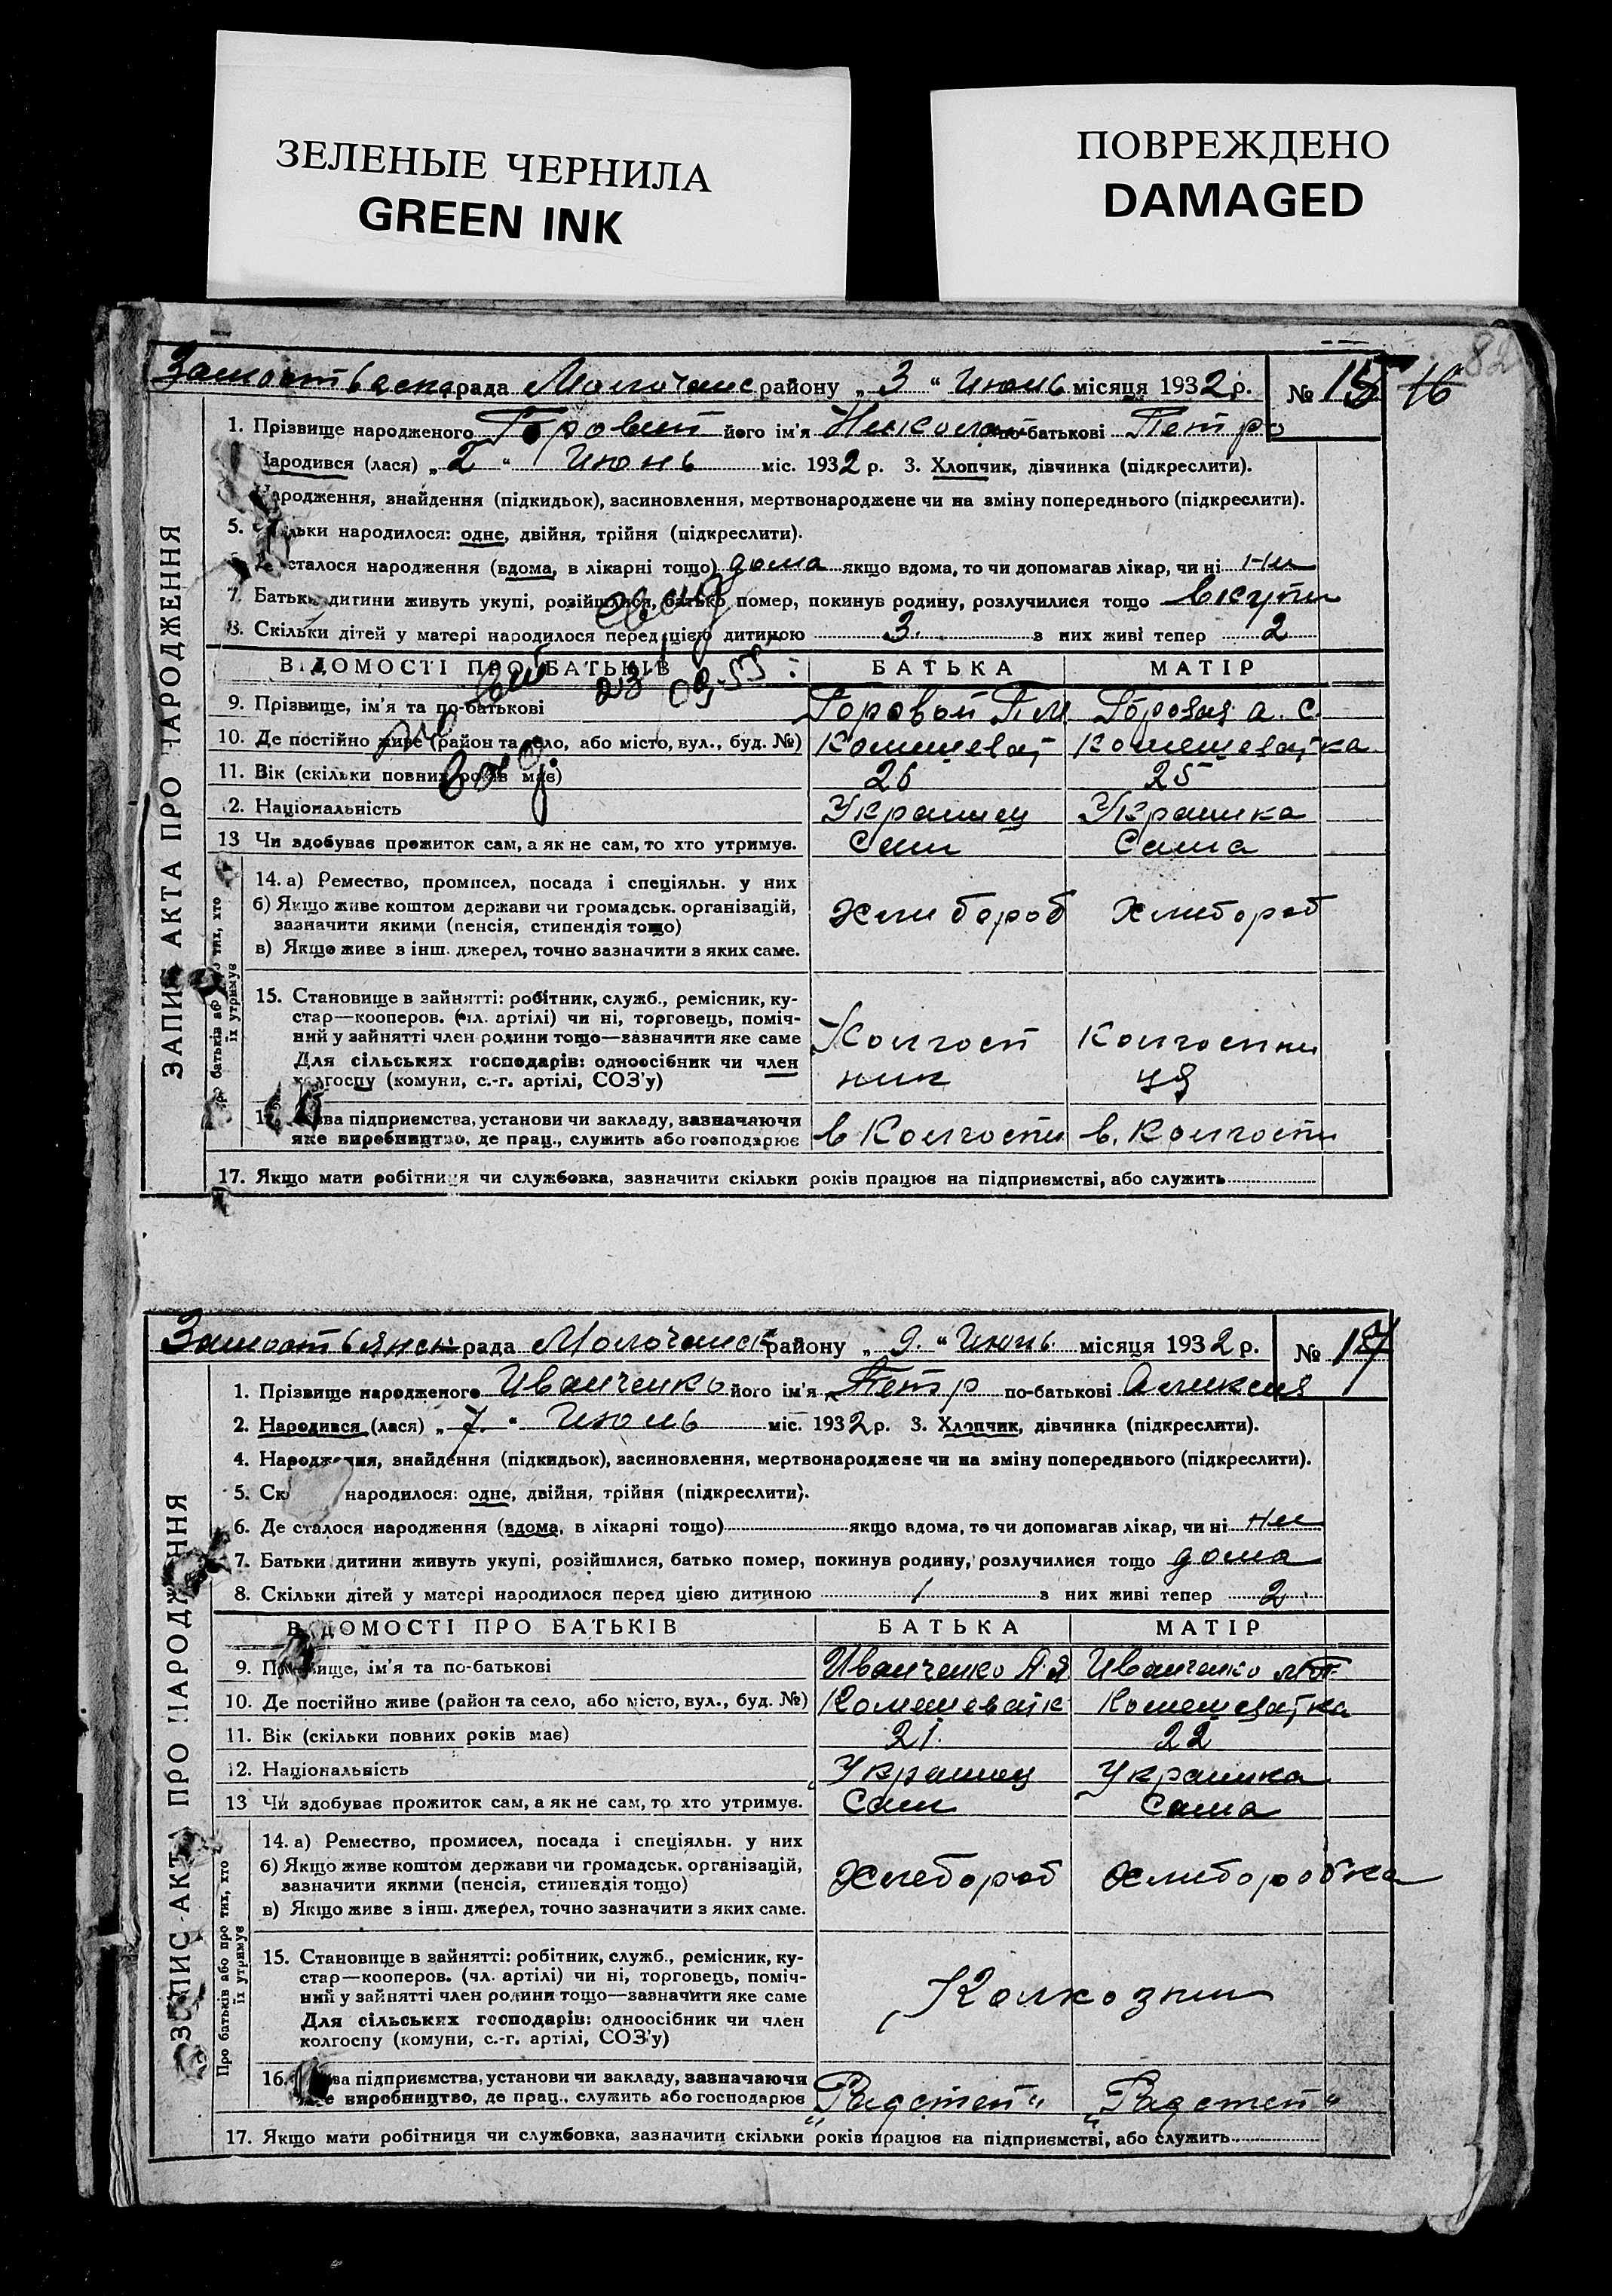 ЗЕЛЕНЫЕ ЧЕРНИЛА
GREEN INK
ПОВРЕЖДЕНО
DAMAGED
82
рада Молочанс району „ 3 “ Июнь місяця 1932 р. № 16
ЗАПИС АКТА ПРО НАРОДЖЕННЯ
1. Прізвище народженого його ім'я Николай по-батькові Петро
Народився (лася) „ 2 “ Июнь міс. 1932 р. 3. Хлопчик, дівчинка (підкреслити).
Народження, знайдення (підкидьок), засиновлення, мертвонароджене чи на зміну попереднього (підкреслити).
5. Скільки народилося: одне, двійня, трійня (підкреслити).
Де сталося народження (вдома, в лікарні тощо) дома якщо вдома, то чи допомагав лікар, чи ні Ни
7. Батьки дитини живуть укупі, розійшлися, батько помер, покинув родину, розлучилися тощо вкупи
8. Скільки дітей у матері народилося перед цією дитиною 3. з них живі тепер 2
ВІДОМОСТІ ПРО БАТЬКІВ БАТЬКА МАТІР
9. Прізвище, ім'я та по-батькові Горовой П М Горовая А. С.
10. Де постійно живе (район та село, або місто, вул., буд. №)
11. Вік (скільки повних років має) 26 25
12. Національність Украинец Украинка
13 Чи здобуває прожиток сам, а як не сам, то хто утримує. Сам Сама
Про батьків або про тих, хто їх утримує
14. а) Ремество, промисел, посада і спеціяльн. у них
б) Якщо живе коштом держави чи громадськ. організацій,
зазначити якими (пенсія, стипендія тощо) Хлибороб Хлибороб
в) Якщо живе з інш. джерел, точно зазначити з яких саме.
15. Становище в зайнятті: робітник, служб., ремісник, ку-
стар—кооперов. (чл. артілі) чи ні, торговець, поміч-
ний у зайнятті член родини тощо—зазначити яке саме Колгосп Колгоспни
Для сільських господарів: одноосібник чи член
колгоспу (комуни, с.-г. артілі, СОЗ'у) ник ця
Назва підприємства, установи чи закладу, зазначаючи
яке виробництво, де прац., служить або господарює в Колгоспи в. Колгоспи
17. Якщо мати робітниця чи службовка, зазначити скільки років працює на підприємстві, або служить
Замостьянск рада Молочанск району „ 9. “ Июнь місяця 1932 р. № 17
ЗАПИС АКТА ПРО НАРОДЖЕННЯ
1. Прізвище народженого Иванченко його ім'я Петр по-батькові Алексея
2. Народився (лася) „ 7. “ Июнь міс. 1932 р. 3. Хлопчик, дівчинка (підкреслити).
4. Народження, знайдення (підкидьок), засиновлення, мертвонароджене чи на зміну попереднього (підкреслити).
5. Ск народилося: одне, двійня, трійня (підкреслити).
6. Де сталося народження (вдома, в лікарні тощо) якщо вдома, то чи допомагав лікар, чи ні Ни
7. Батьки дитини живуть укупі, розійшлися, батько помер, покинув родину, розлучилися тощо дома
8. Скільки дітей у матері народилося перед цією дитиною 1 з них живі тепер 2
ВІДОМОСТІ ПРО БАТЬКІВ БАТЬКА МАТІР
9. Прізвище, ім'я та по-батькові Иванченко А. Я Иванченко М П.
10. Де постійно живе (район та село, або місто, вул., буд. №)
11. Вік (скільки повних років має) 21. 22
12. Національність Украинец Украинка
13 Чи здобуває прожиток сам, а як не сам, то хто утримує. Сам Сама
Про батьків або про тих, хто їх утримує
14. а) Ремество, промисел, посада і спеціяльн. у них
б) Якщо живе коштом держави чи громадськ. організацій,
зазначити якими (пенсія, стипендія тощо) Хлебороб Хлиборобка
в) Якщо живе з інш. джерел, точно зазначити з яких саме.
15. Становище в зайнятті: робітник, служб., ремісник, ку-
стар—кооперов. (чл. артілі) чи ні, торговець, поміч-
ний у зайнятті член родини тощо—зазначити яке саме
Для сільських господарів: одноосібник чи член
колгоспу (комуни, с.-г. артілі, СОЗ'у)
16. Назва підприємства, установи чи закладу, зазначаючи
яке виробництво, де прац., служить або господарює „Радстеп“ „Радстеп“
17. Якщо мати робітниця чи службовка, зазначити скільки років працює на підприємстві, або служить